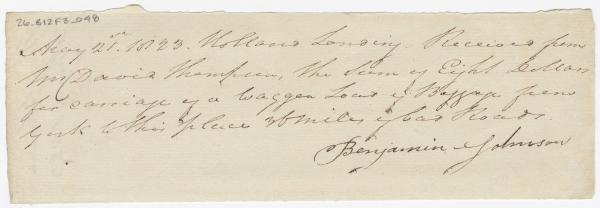 26-B12F3-048
May 21st. 1823. Holland Landing. Received from
Mr David Thompson, the Sum of Eight Dollars
for carriage of a Waggon Load of Baggage from
York to this place 36 miles of bad Roads.
Benjamin Johnson